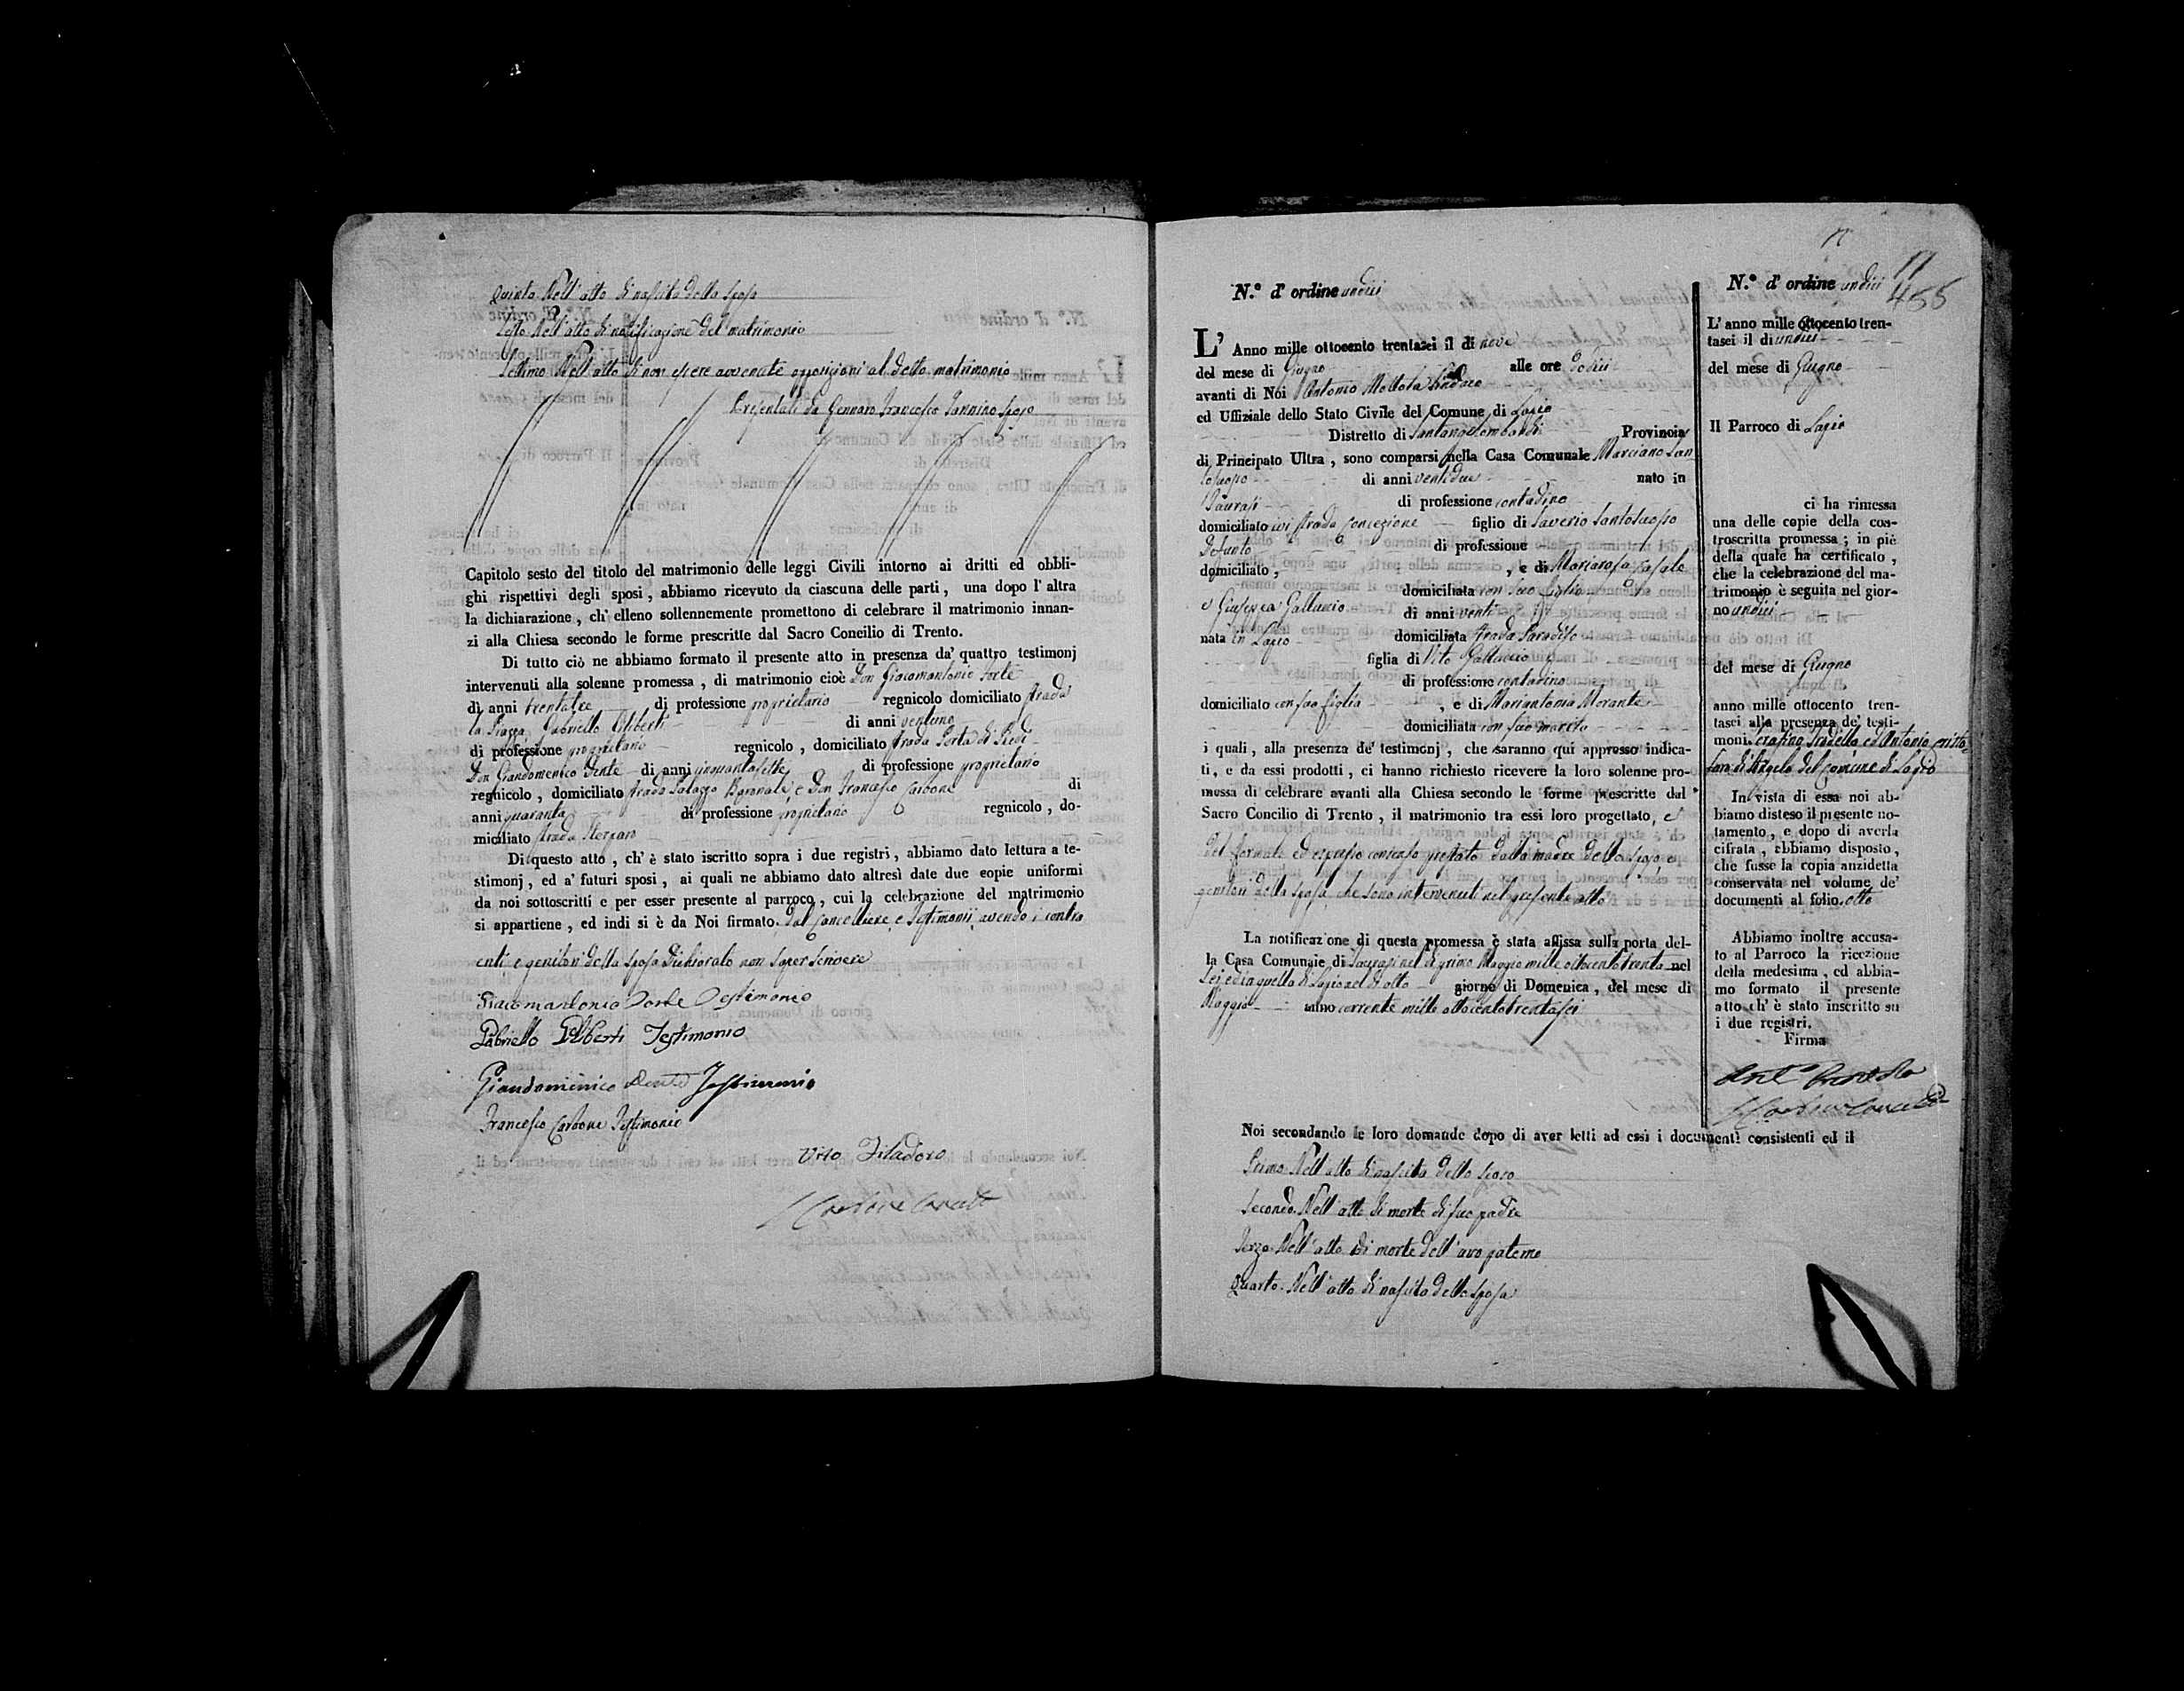 Quinto. Nell'atto di nascita della sposa
Sesto. Nell'atto di notificazione del matrimonio
Settimo. Nell'atto di non essere avvenute opposizioni al detto matrimonio
Presentati da Gennaro Francesco Iannino sposo
Capitolo sesto del titolo del matrimonio delle leggi Civili intorno ai dritti ed obbli-
ghi rispettivi degli sposi, abbiamo ricevuto da ciascuna delle parti, una dopo l'altra
la dichiarazione, ch'elleno sollennemente promettono di celebrare il matrimonio innan-
zi alla Chiesa secondo le forme prescritte dal Sacro Concilio di Trento.
Di tutto ciò ne abbiamo formato il presente atto in presenza da' quattro testimonj
intervenuti alla solenne promessa, di matrimonio cioè Don Giacomantonio Forte
di anni trentatre di professione proprietario regnicolo domiciliato strada
la Piazza, Gabriello Aliberti di anni ventuno
di professione proprietario regnicolo, domiciliato strada Porta di Piedi
Don Giandomenico Dente di anni cinquantasette di professione proprietario
regnicolo, domiciliato strada Palazzo Baronale, e Don Francesco Carbone di
anni quaranta di professione proprietario regnicolo, do-
miciliato strada
Di questo atto, ch'è stato iscritto sopra i due registri, abbiamo dato lettura a te-
stimonj, ed a' futuri sposi, ai quali ne abbiamo dato altresì date due copie uniformi
da noi sottoscritti e per esser presente al parroco, cui la celebrazione del matrimonio
si appartiene, ed indi si è da Noi firmato. Dal Cancelliere, e Testimonii avendo i contra
enti e genitori della sposa dichiarato non saper scrivere
Giacomantonio Forte Testimonio
Gabriello Aliberti Testimonio
Giandomenico Dente Testimonio
Francesco Carbone Testimonio
Vito
N.° d'ordine undici
L'Anno mille ottocento trentasei il dì nove
del mese di Giugno alle ore dodici
avanti di Noi Antonio Mottola Sindaco
ed Uffiziale dello Stato Civile del Comune di Lapio
Distretto di Santangelombardi Provincia
di Principato Ultra, sono comparsi nella Casa Comunale Marciano San
tosuosso di anni ventidue nato in
Taurasi di professione contadino
domiciliato ivi strada Concezione figlio di Saverio Santosuosso
Defunto di professione
domiciliato, , e di Mariarosa Casale
domiciliata con suo figlio
e Giuseppa Galluccio di anni venti
nata in Lapio domiciliata strada Paradiso
figlia di Vito Galluccio
di professione contadino
domiciliato con sua figlia , e di Mariantonia Morante
domiciliata con suo marito
i quali, alla presenza de' testimonj, che saranno qui appresso indica-
ti, e da essi prodotti, ci hanno richiesto ricevere la loro solenne pro-
messa di celebrare avanti alla Chiesa secondo le forme prescritte dal
Sacro Concilio di Trento, il matrimonio tra essi loro progettato, e
del formale ed espresso consenso prestato dalla madre dello sposo, e
genitori della sposa che sono intervenuti nel presente atto
La notificazione di questa promessa è stata affissa sulla porta del-
la Casa Comunale di Taurasi nel dì primo Maggio mille ottocento trenta nel
sei, ed in quella di Lapio nel dì otto giorno di Domenica, del mese di
Maggio anno corrente mille ottocento trentasei
Noi secondando le loro domande dopo di aver letti ad essi i documenti consistenti ed il
Primo. Nell'atto di nascita dello sposo
Secondo. Nell'atto di morte di suo padre
Terzo. Nell'atto di morte dell'avo paterno
Quarto. Nell'atto di nascita della sposa
11
455
N.° d'ordine undici
L'anno mille ottocento tren-
tasei il dì undici
del mese di Giugno
Il Parroco di Lapio
ci ha rimessa
una delle copie della con-
troscritta promessa; in piè
della quale ha certificato,
che la celebrazione del ma-
trimonio è seguita nel gior-
no undici
del mese di Giugno
anno mille ottocento tren-
tasei alla presenza de' testi-
moni Serafino ed Antonio
di Angelo del comune di Lapio
In vista di essa noi ab-
biamo disteso il presente no-
tamento, e dopo di averla
cifrata, abbiamo disposto,
che fusse la copia anzidetta
conservata nel volume de'
documenti al folio. otto
Abbiamo inoltre accusa-
to al Parroco la ricezione
della medesima, ed abbia-
mo formato il presente
atto ch'è stato inscritto su
i due registri.
Firma